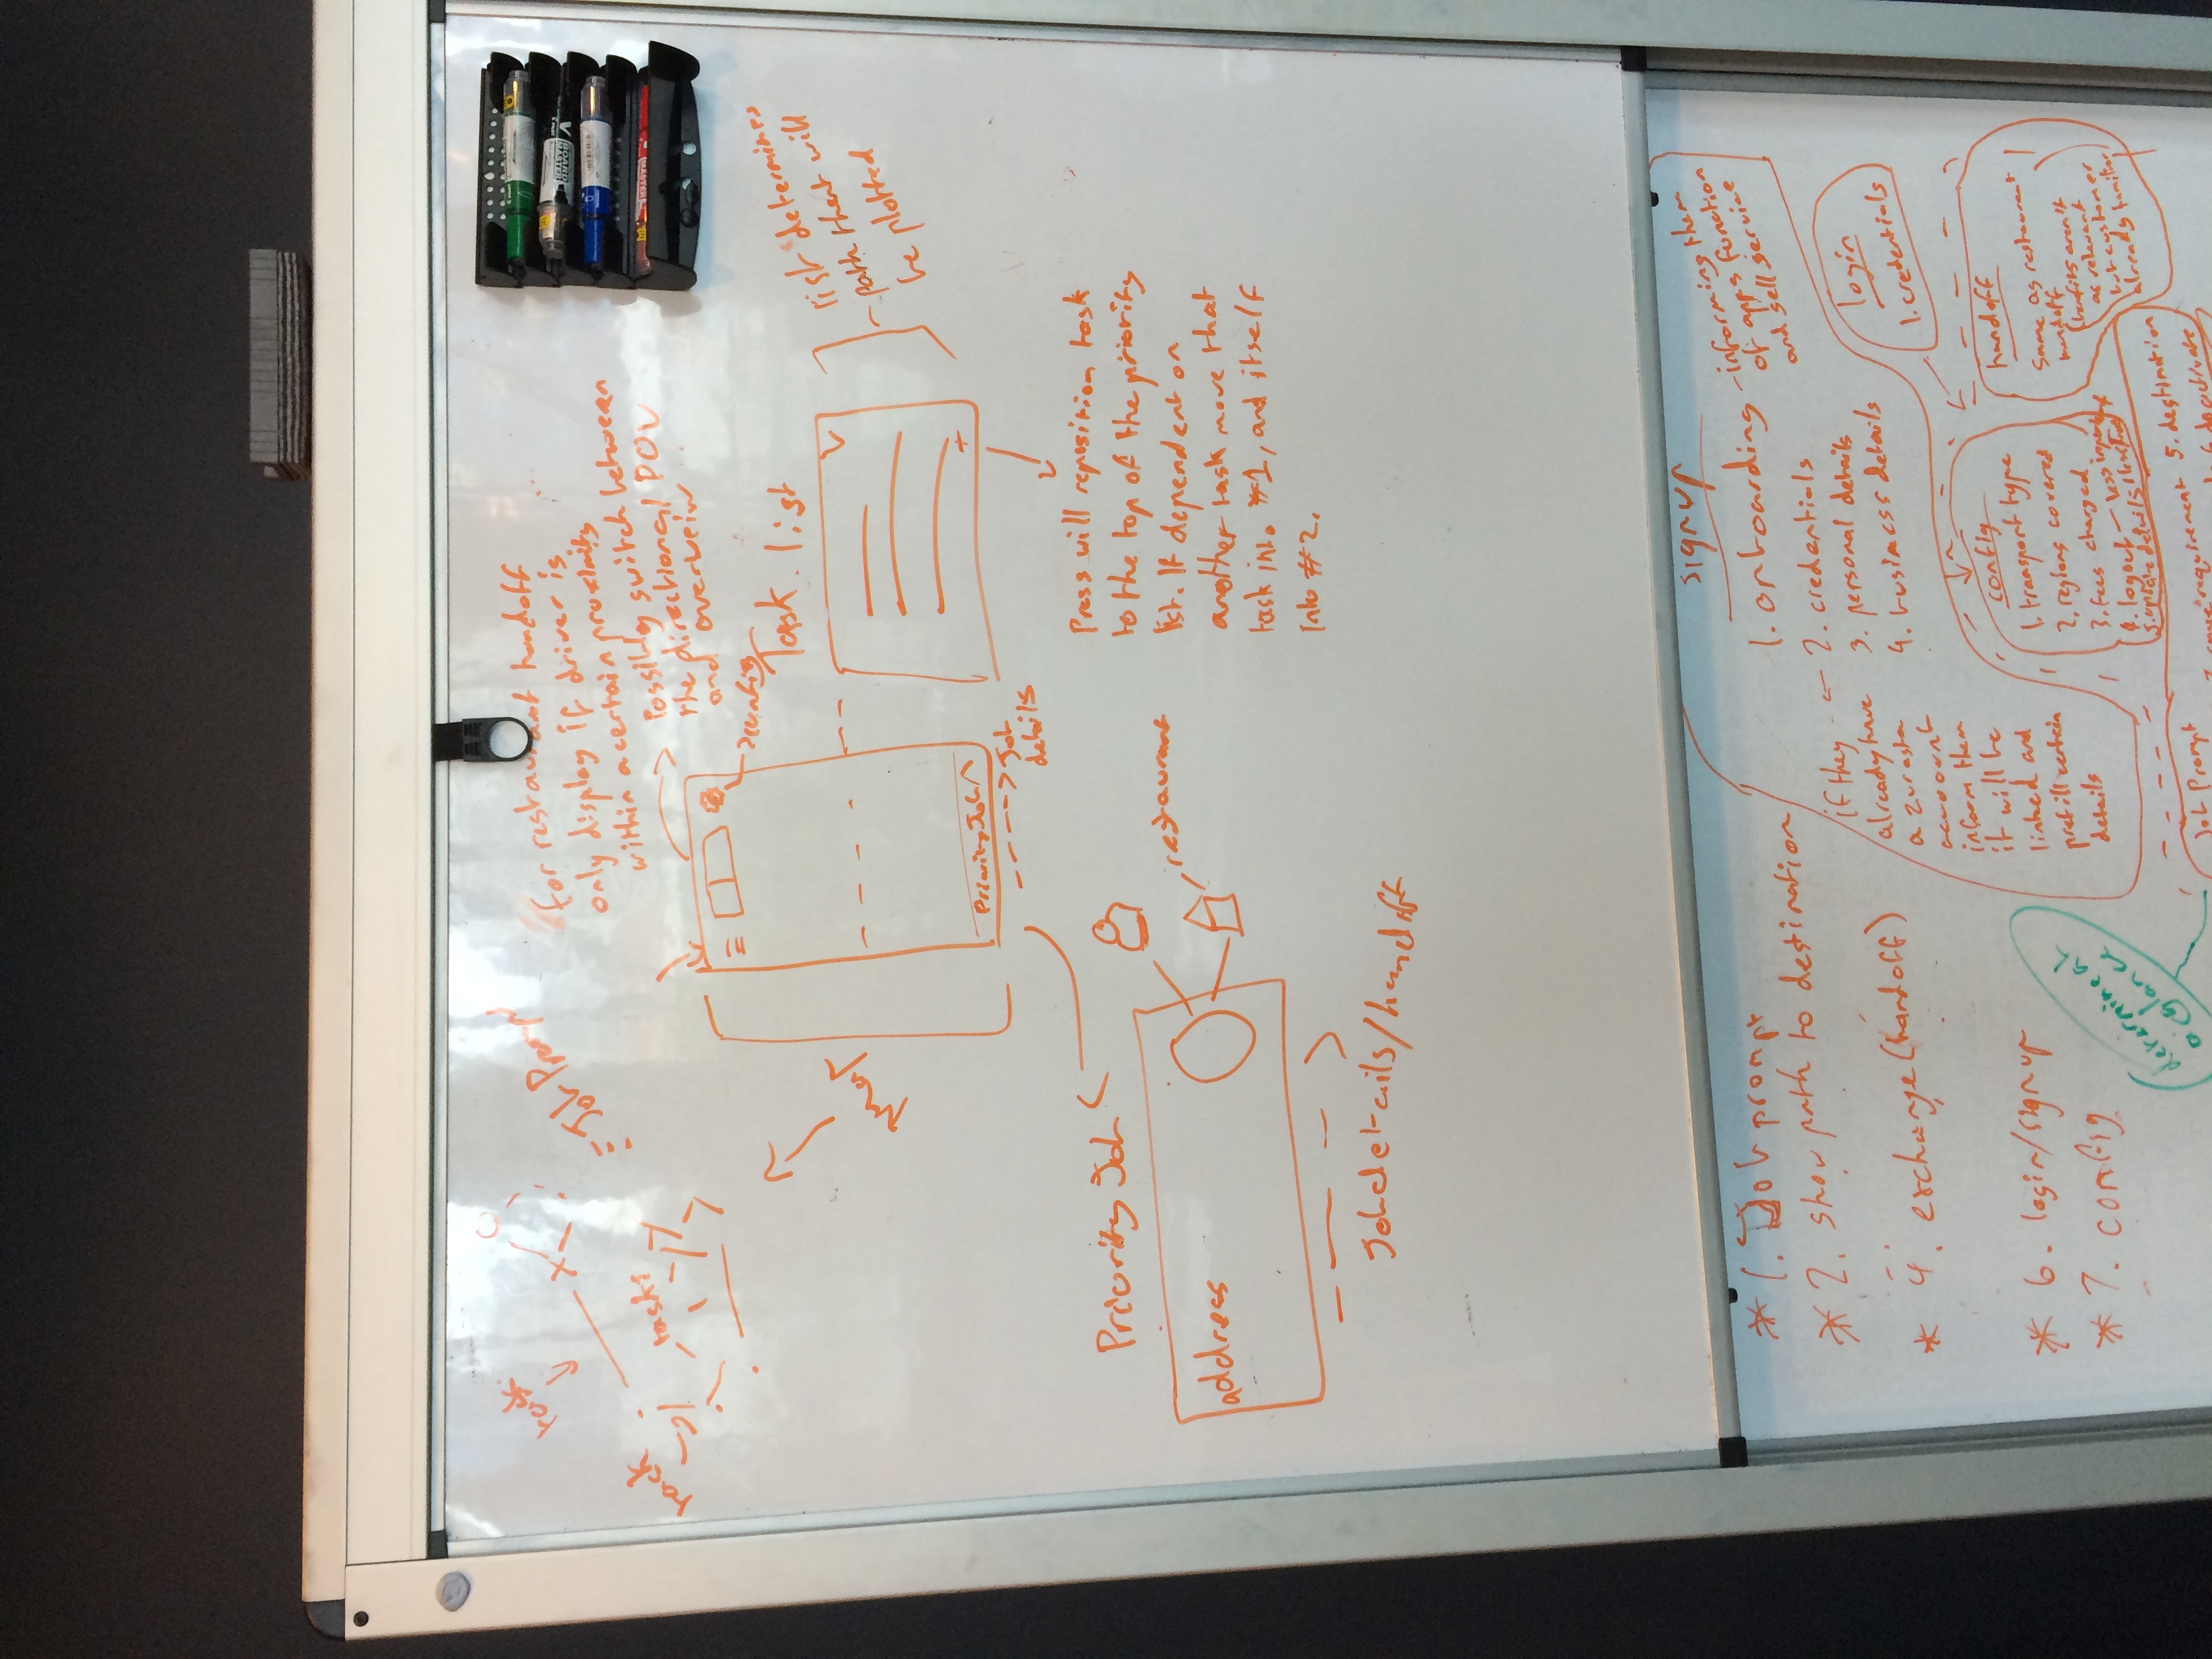 task
task
task
Job Prompt
for restaurant handoff
only display if driver is
within a certain proximity
Possibly switch between
the directional POV
and overveiw
config
Map
Priority Job
Job
details
Task list
list determines
path that will
be plotted
Press will reposition task
to the top of the priority
list. If dependent on
another task move that
task into #1, and itself
into #2.
Priority Job
address
restaurant
Job details/handoff
BOARD
MASTER
MASTER
* 1. Job prompt
* 2. show path to destination
* 4. exchange (handoff)
* 6. login/signup
* 7. config
determine at
a glance
signup
1. onboarding - informing them
of apps function
and sell service
2. credentials
3. personal details
4. business details
if they
already have
a
account
inform them
it will be
linked and
prefill certain
details
login
1. credentials
config
1. transport type
2. regions covered
3. fees charged
4. logout - less important
5. update details
handoff
same as restaurant
handoff
(benefits aren't
as relevant
but customer
already familiar)
Job Prompt
requirement 5. destination
deactivate